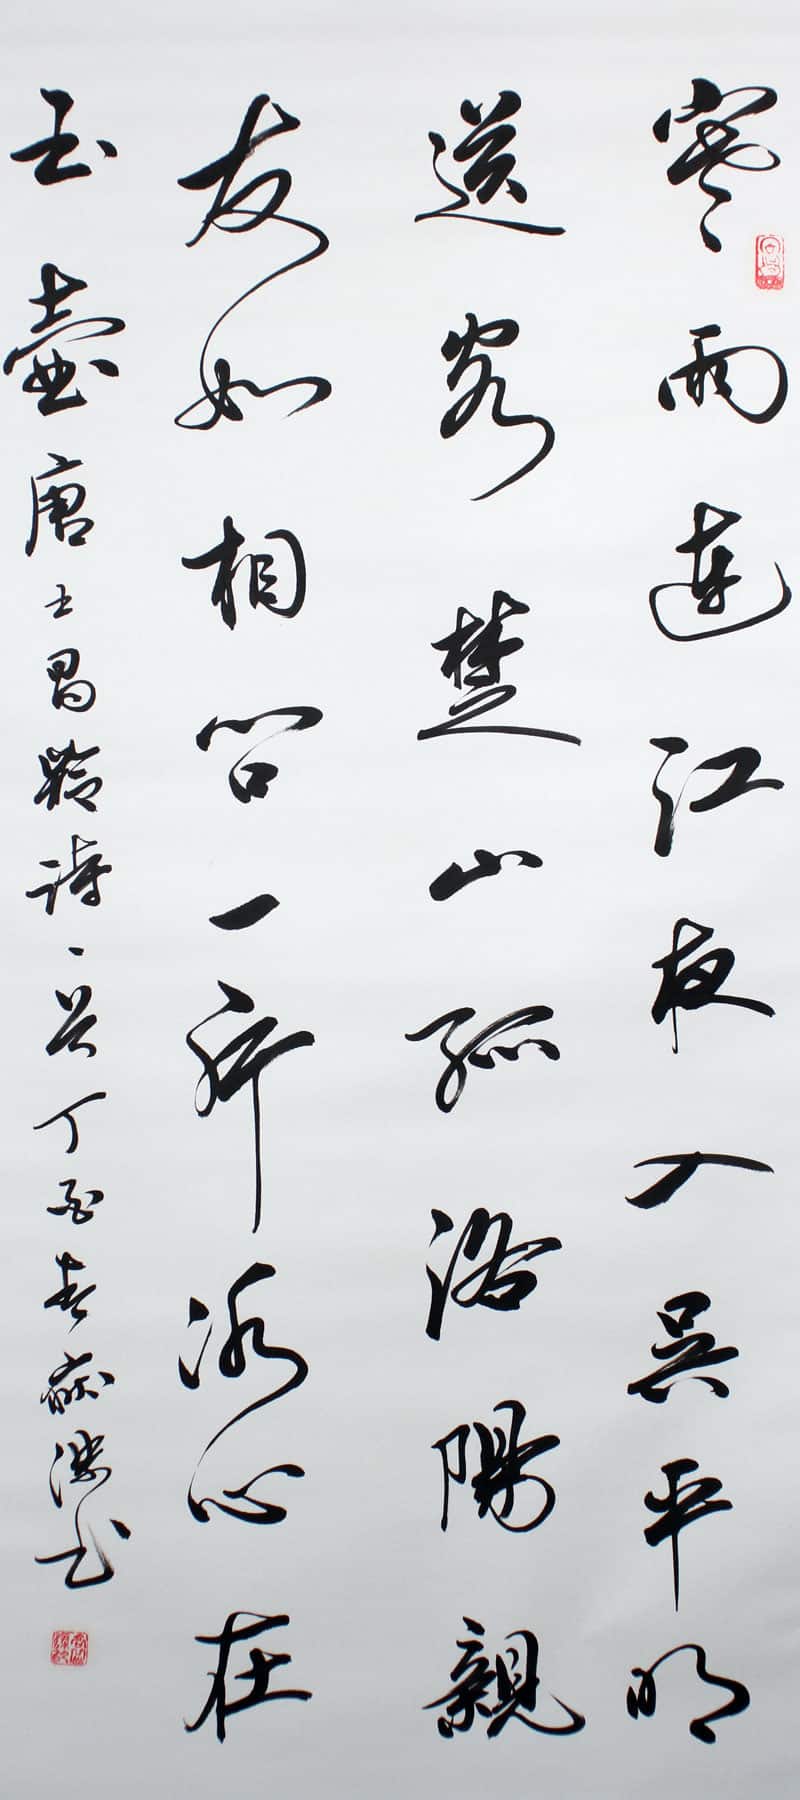 寒雨連江夜入吳平明
送客楚山孤洛陽親
友如相問一片冰心在
玉壺唐王昌齡詩一首丁酉春書